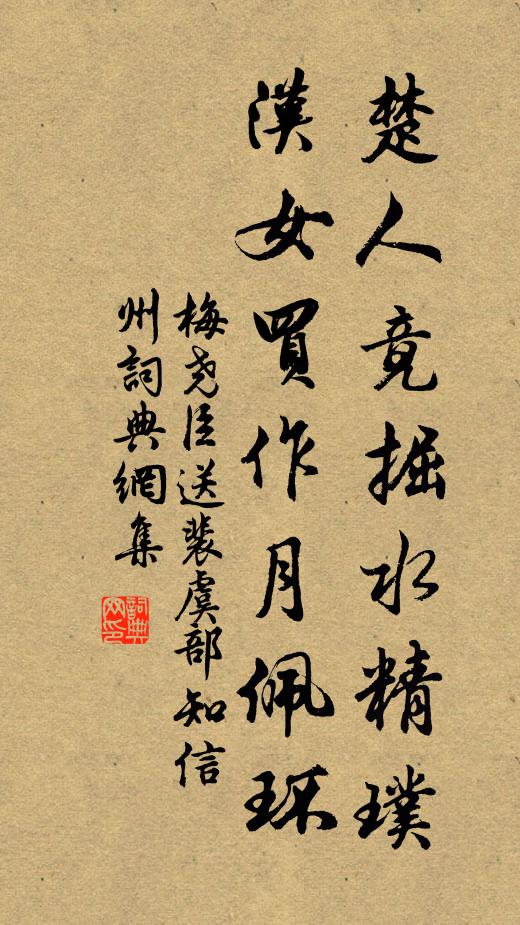 楚人竟掘水精璞
漢女買作月佩环
梅尧臣送裴虞部知信
州詞典網集
詞典网印